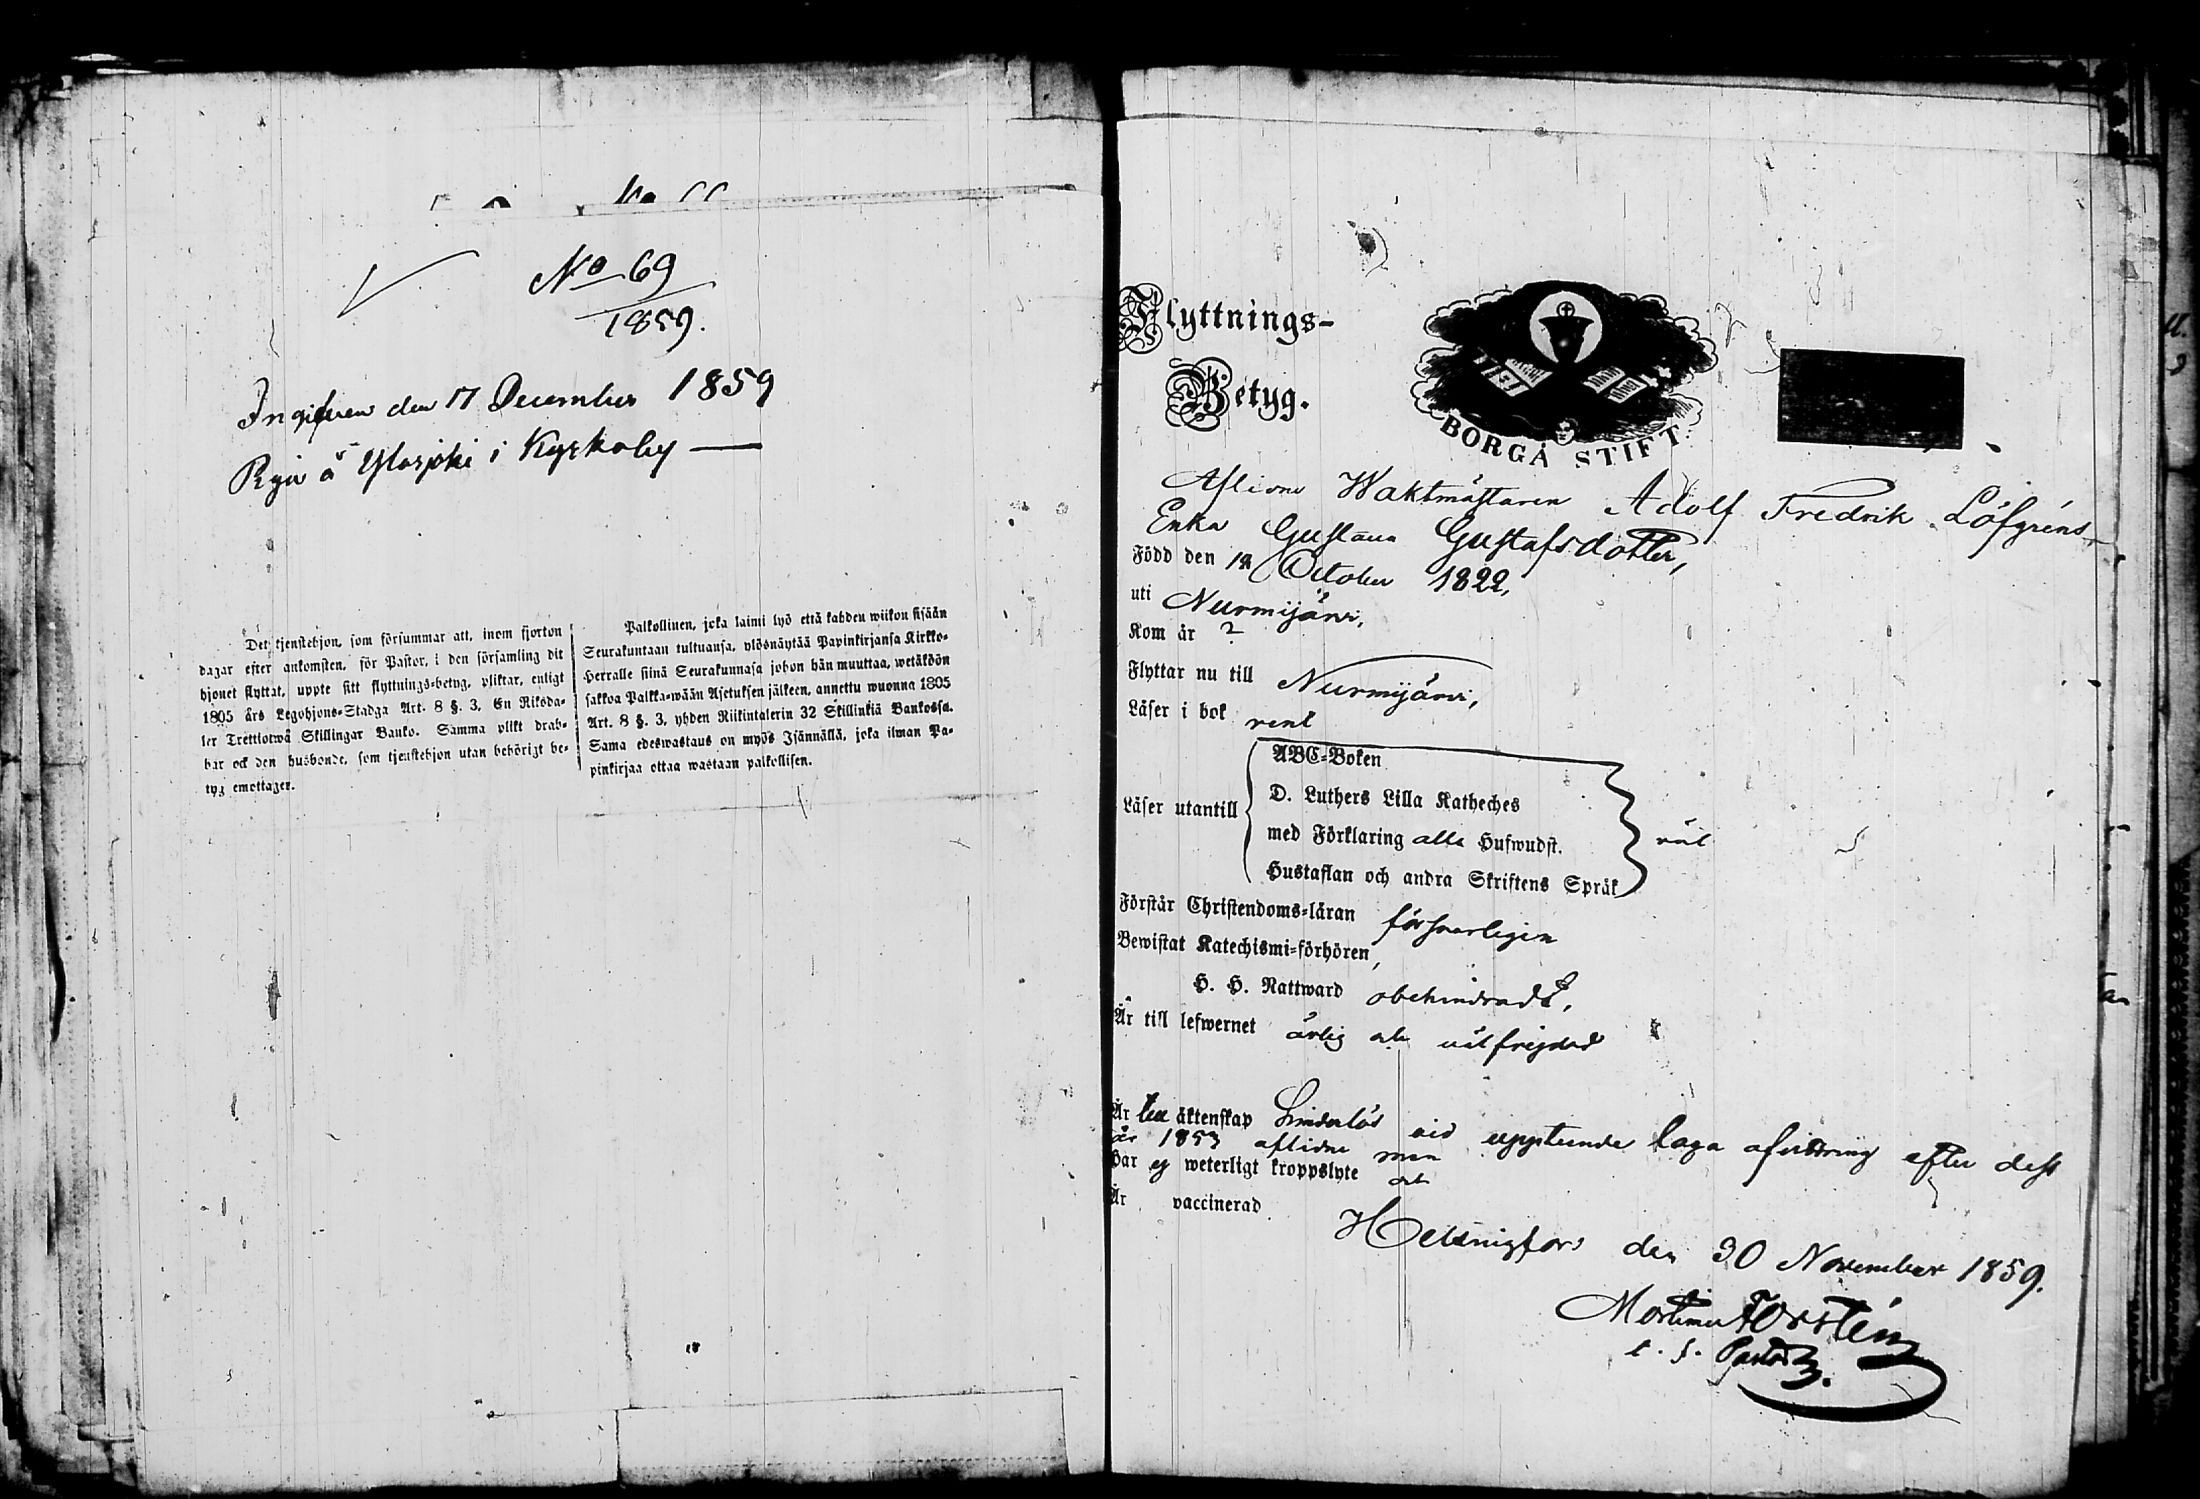 No 69
1859.
Ingifven den 17 December 1859
å Ylosjoki i Kyrkoby
Det tjenstehjon, som försummar att, inom fjorton
dagar efter ankomsten, för Pastor, i den församling dit
hjonet flyttat, uppte sitt flyttnings-betyg, pliktar, enligt
1805 års Legohjons-Stadga Art. 8 §. 3, En Riksda-
ler Trettiotwå Skillingar Banko. Samma plikt drab-
bar ock den husbonde, som tjenstehjon utan behörigt be-
tyg emottager.
Palkollinen, joka laimi lyö että kahden wiikon sisään
Seurakuntaan tultuansa, ylösnäytää Papinkirjansa Kirkko-
Herralle siinä Seurakunnasa johon hän muuttaa, wetäköön
sakkoa Palkka-wään Asetuksen jälkeen, annettu wuonna 1805
Art. 8 §. 3, yhden Riikintalerin 32 Skillinkiä Bankossa.
Sama edeswastaus on myös Isännällä, joka ilman Pa-
pinkirjaa ottaa wastaan palkollisen.
Flyttnings-
Betyg.
BORGÅ STIFT
Aflidne Waktmästaren Adolf Fredrik Löfgréns
Enka Gustava Gustafsdotter,
Född den October 1822,
uti Nurmijärvi,
Kom år ?
Flyttar nu till Nurmijärvi,
Läser i bok rent
Läser utantill
ABC-Boken
D. Luthers Lilla Katheches
med Förklaring alla Hufwudst.
Hustaflan och andra Skriftens Språk
väl
Förstår Christendoms-läran försvarligen
Bewistat Katechismi-förhören,
H. H. Nattward obehindradt,
Är till lefwernet ärlig och välfrejdad
Är till äktenskap hinderlös vid uppteende laga afvittring efter dess
år 1853 aflidne man
Har ej weterligt kroppslyte och
Är vaccinerad
Helsingfors den 30 November 1859.
Mortimer Forstén
t. f. Pastor.